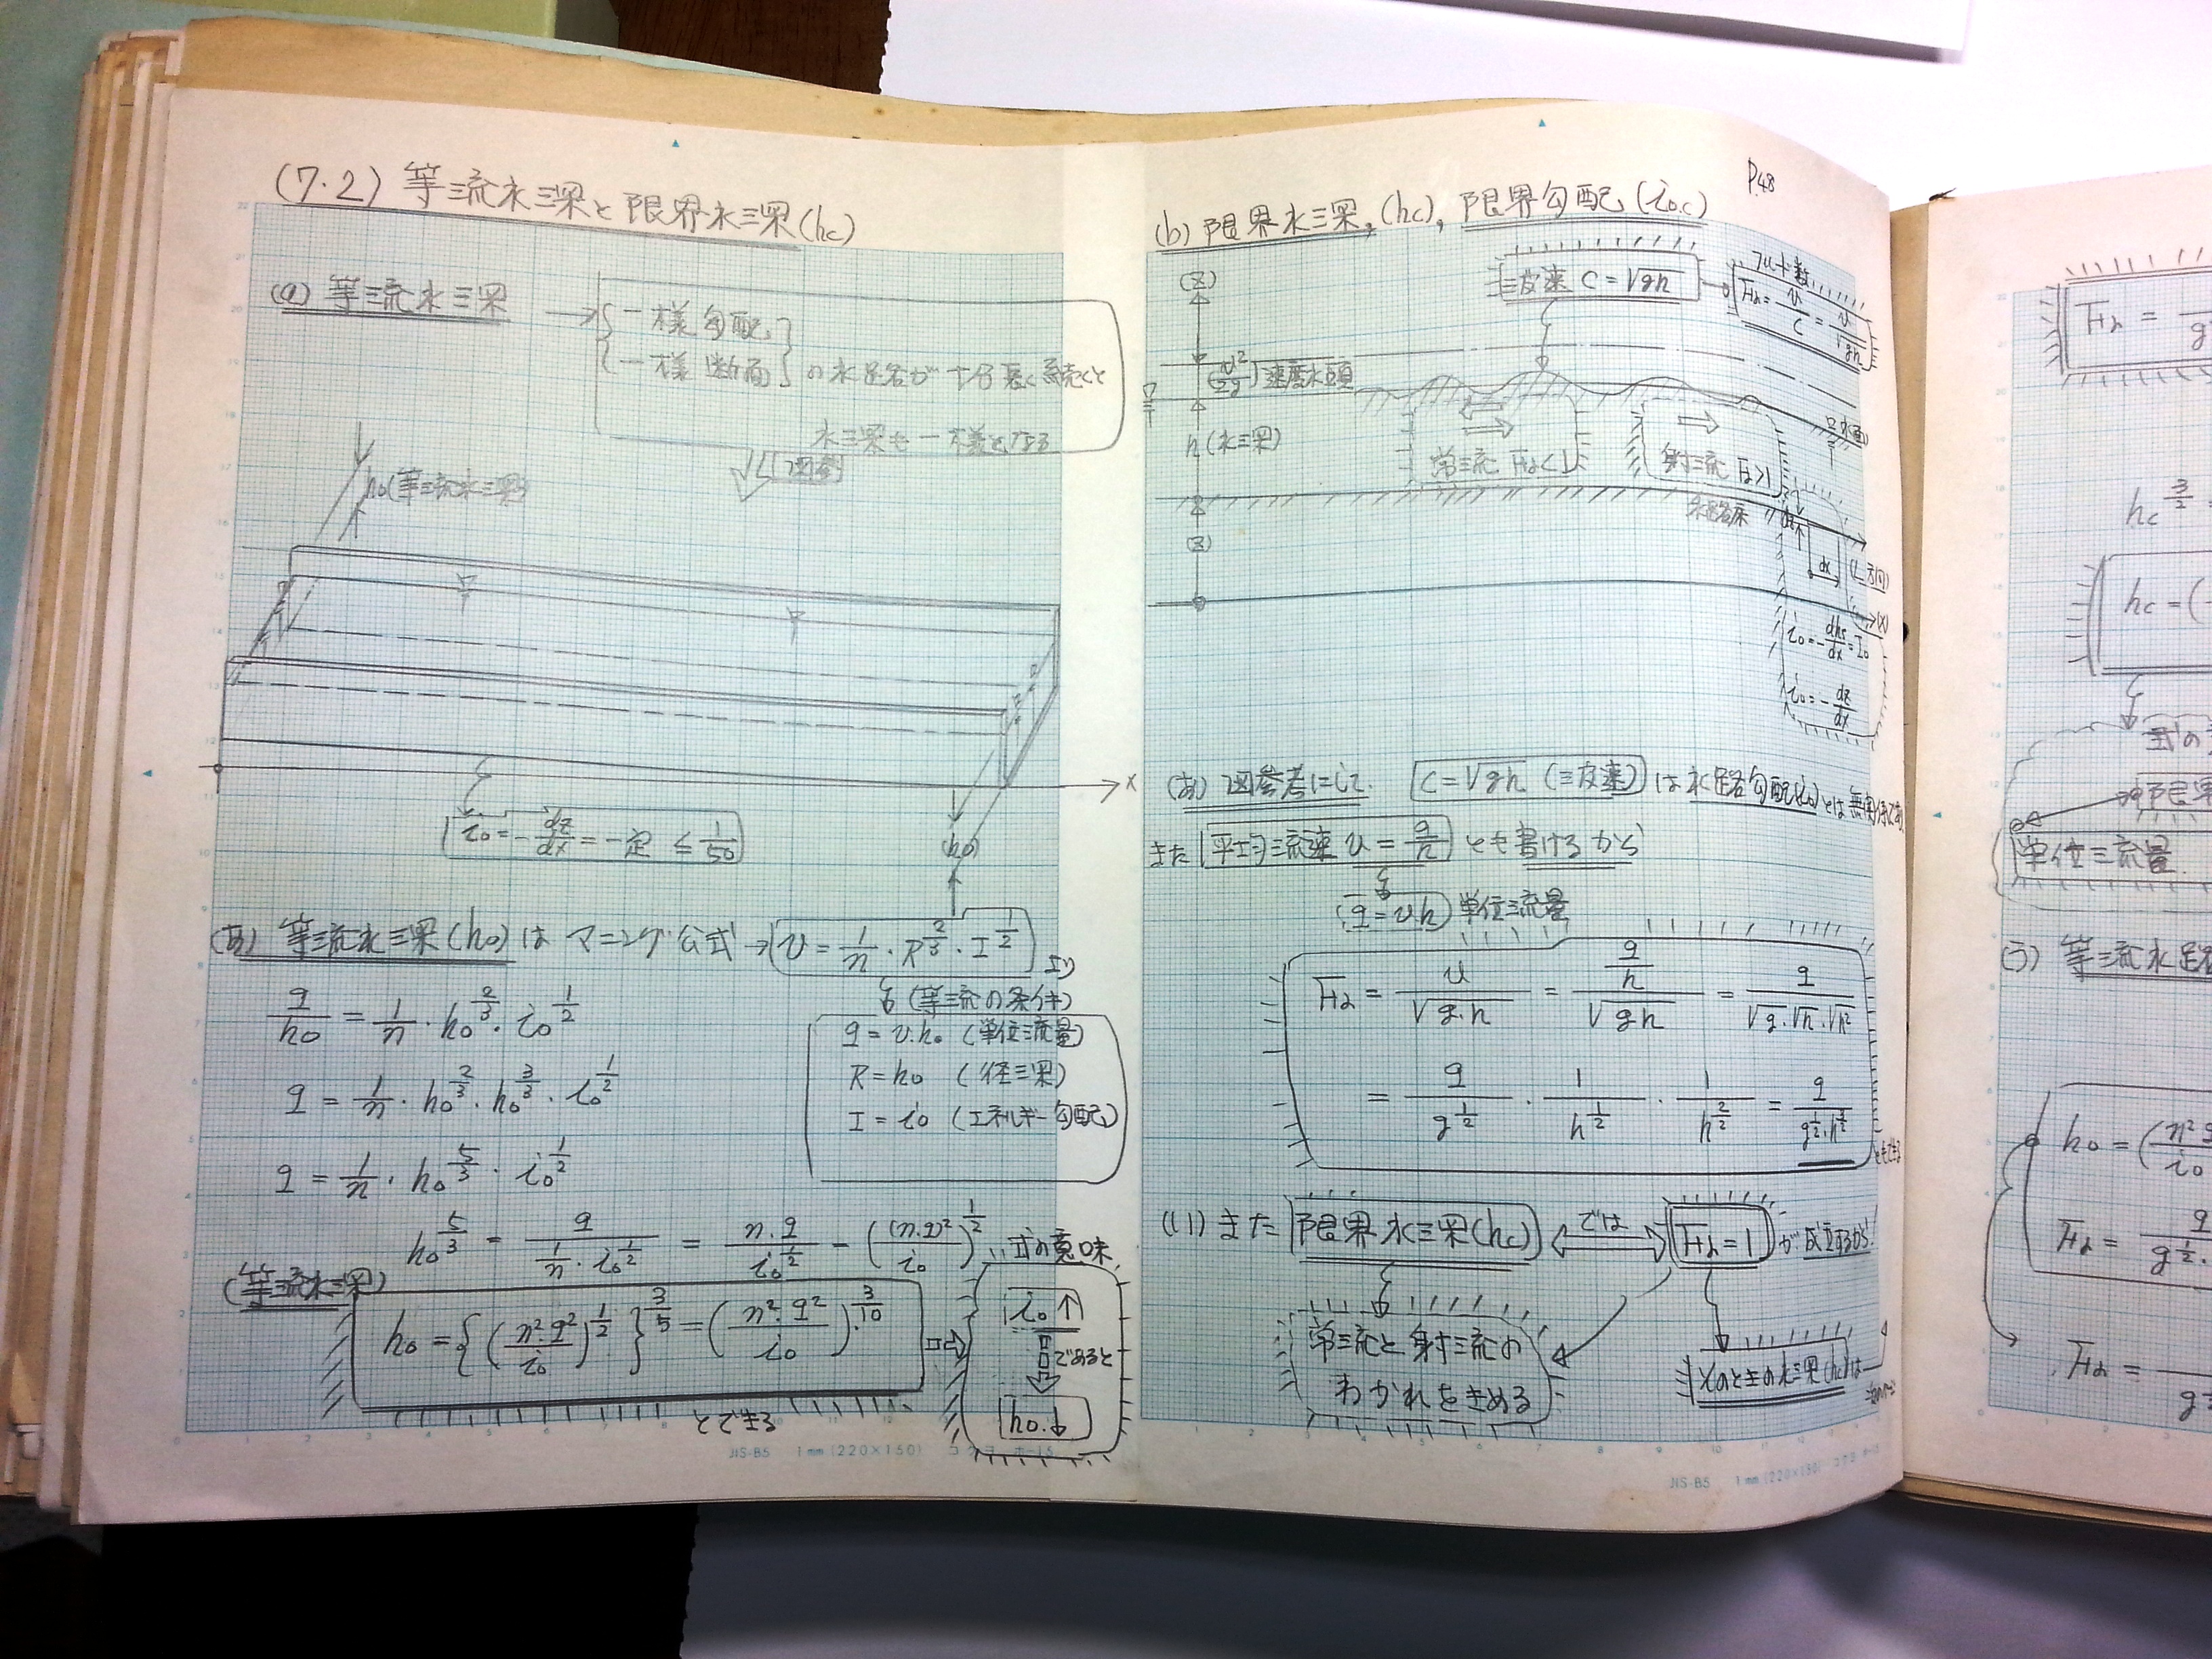 (7.2) 等流水深と限界水深(hc)
(a) 等流水深
一様勾配
一様断面 の水路が十分長く続くと
水深も一様となる
図参
h₀(等流水深)
x
i₀ = -dz/dx = 一定 ≦ 1/50
(h₀)
(あ) 等流水深(h₀)は マニング公式→ v = 1/n・R^(2/3)・I^(1/2) より
(等流の条件)
q = v.h₀ (単位流量)
R = h₀ (径深)
I = i₀ (エネルギー勾配)
q/h₀ = 1/n・h₀^(2/3)・i₀^(1/2)
q = 1/n・h₀^(2/3)・h₀^(3/3)・i₀^(1/2)
q = 1/n・h₀^(5/3)・i₀^(1/2)
h₀^(5/3) = q/(1/n・i₀^(1/2)) = n.q/i₀^(1/2) = ((n.q)²/i₀)^(1/2)
(等流水深)
h₀ = {(n².q²/i₀)^(1/2)}^(3/5) = (n².q²/i₀)^(3/10)
とできる
式の意味
i₀↑
であると
h₀.↓
JIS-B5 1mm(220×150) コクヨ ホ-15
P.48
(b) 限界水深,(hc), 限界勾配(i₀.c)
(Z)
波速 C = √gh
フルード数
Fr = v/C = v/√gh
(v²/2g) 速度水頭
h(水深)
常流 Fr<1
射流 Fr>1
水面
水路床
(Z)
dx
(L方向)
(X)
i₀ = -dhs/dx = I₀
i₀ = -dz/dx
(あ) 図参考にして C = √gh (≡波速) は 水路勾配(i₀)とは無関係であり,
また 平均流速 v = q/h とも書けるから
q = v.h 単位流量
Fr = v/√g.h = (q/h)/√gh = q/(√g.√h.√h²)
= q/g^(1/2)・1/h^(1/2)・1/h^(2/2) = q/(g^(1/2).h^(3/2))
ともできる
(い) また 限界水深(hc) では Fr = 1 が成立するから
常流と射流の
わかれをきめる
そのときの水深(hc)は
JIS-B5 1mm(220×150) コクヨ ホ-15
Fr =
hc^(3/2)
hc = (
式の
限界
単位流量
(う) 等流水路
h₀ = (n².q
i₀
Fr = q
g^(1/2).
Fr =